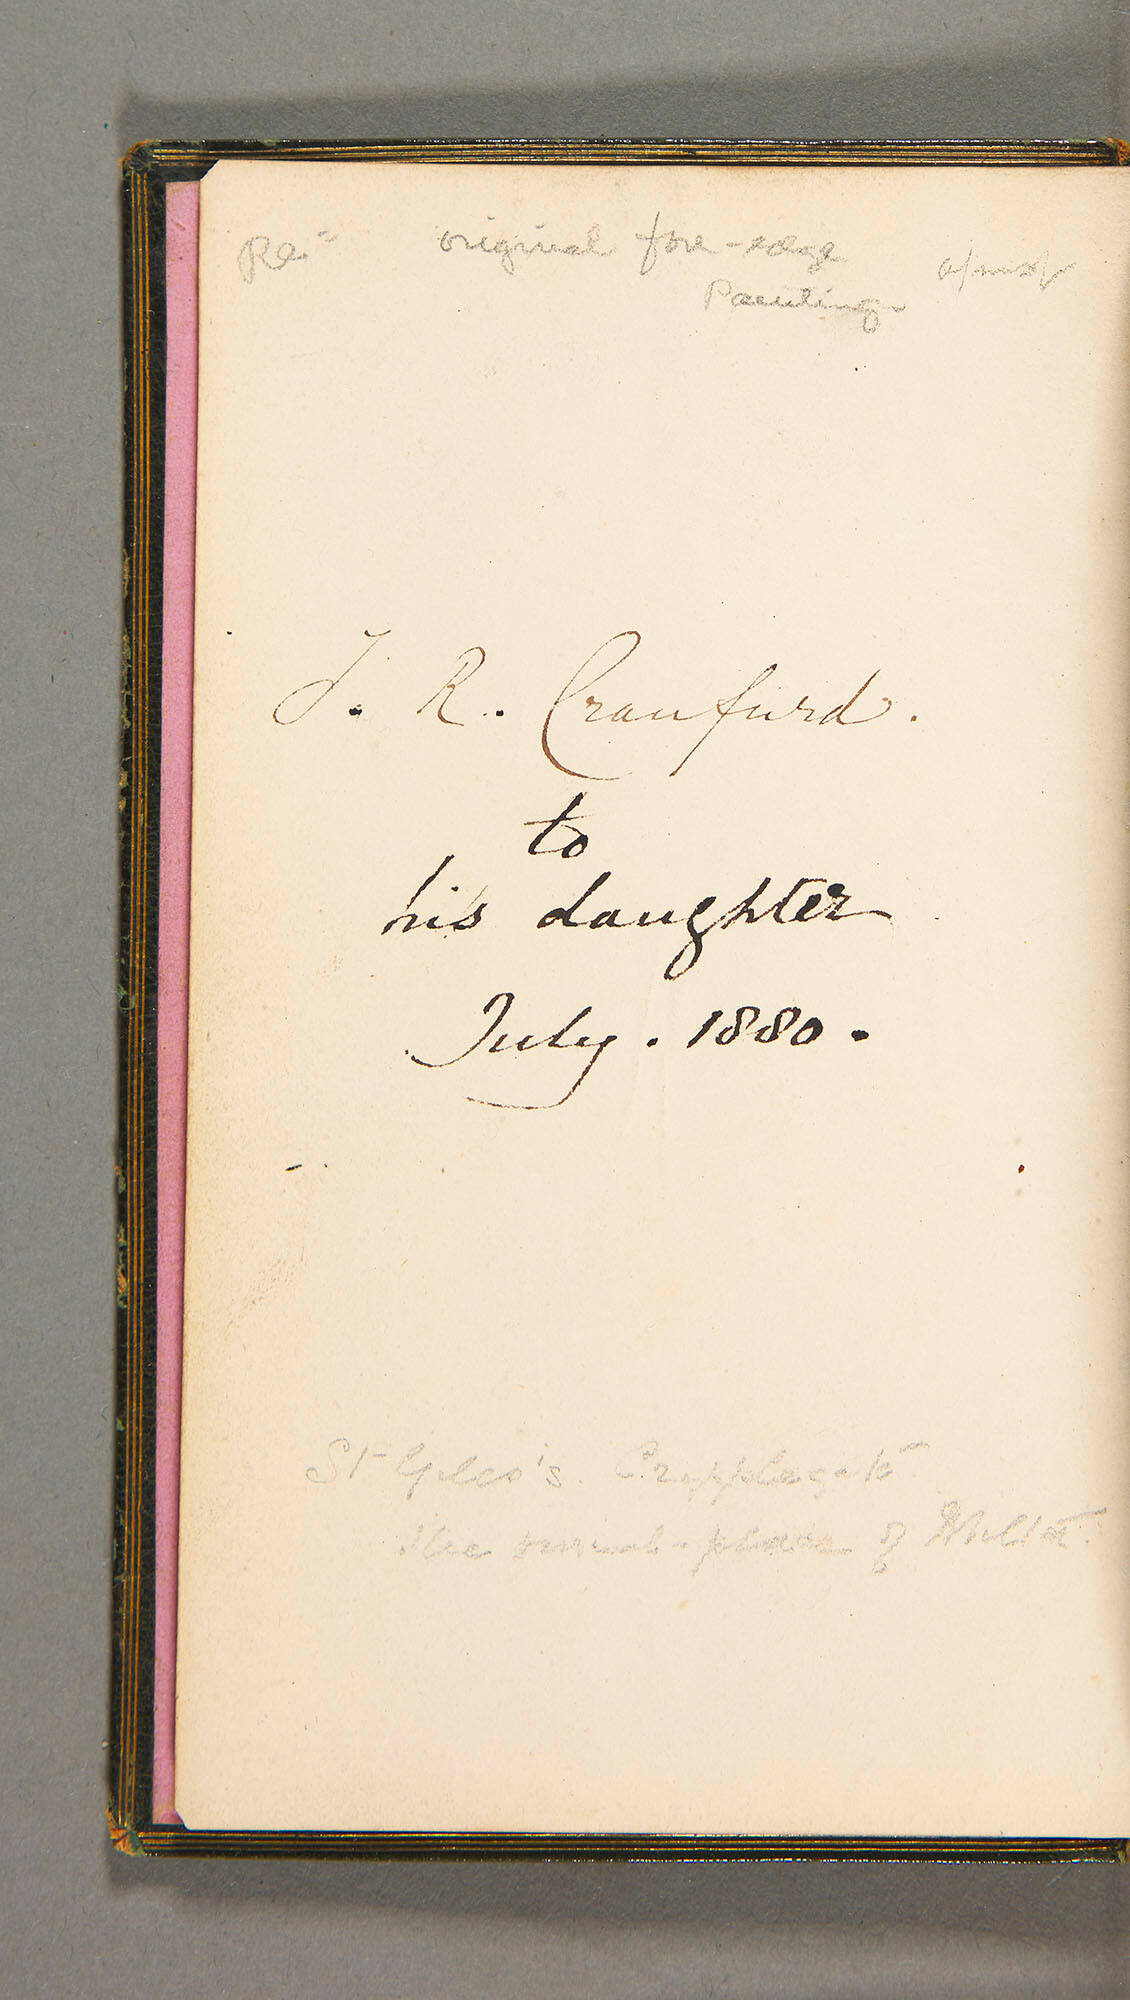 original fore-edge
Painting
J. R. Craufurd.
to
his daughter
July. 1880.
St Giles's. Cripplegate
the burial-place of Milton.